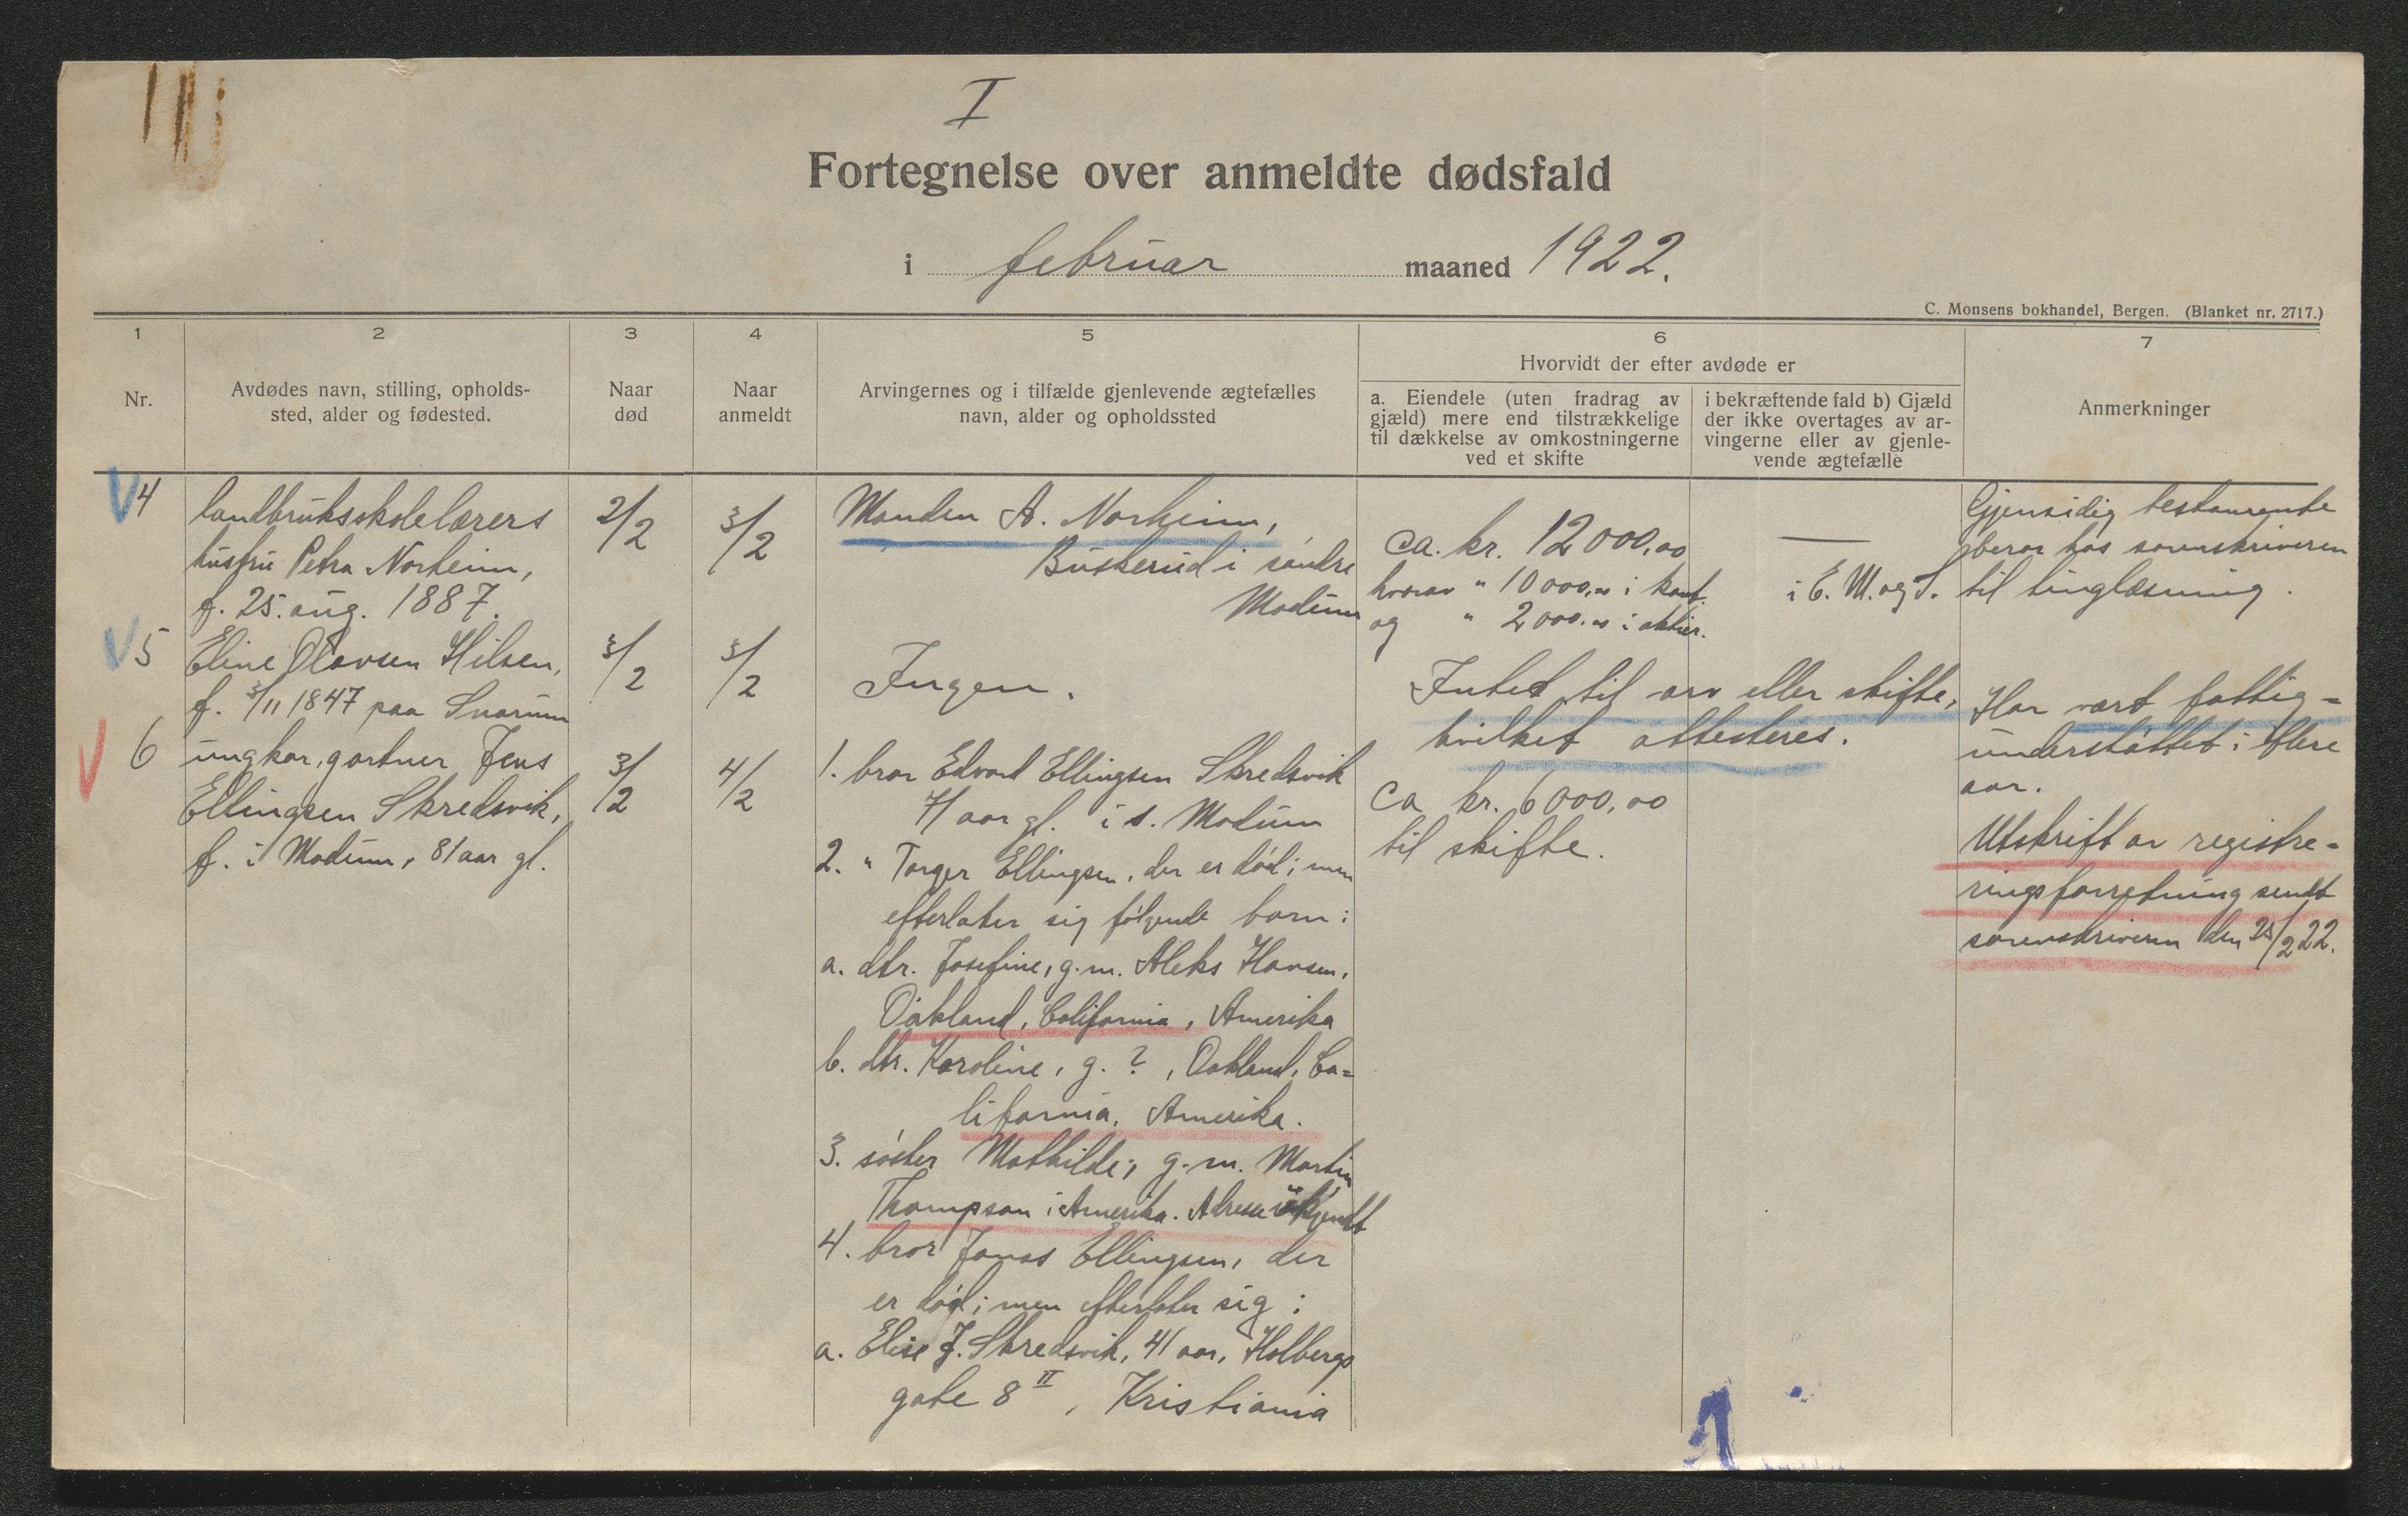 I
Fortegnelse over anmeldte dødsfald
i februar maaned 1922.
C. Monsens bokhandel, Bergen. (Blanket nr. 2717.)
1
Nr.
2
Avdødes navn, stilling, opholds-
sted, alder og fødested.
3
Naar
død
4
Naar
anmeldt
5
Arvingernes og i tilfælde gjenlevende ægtefælles
navn, alder og opholdssted
6
Hvorvidt der efter avdøde er
a. Eiendele (uten fradrag av
gjæld) mere end tilstrækkelige
til dækkelse av omkostningerne
ved et skifte
i bekræftende fald b) Gjæld
der ikke overtages av ar-
vingerne eller av gjenle-
vende ægtefælle
7
Anmerkninger
4
landbruksskolelærers
husfru Petra Norheim,
f. 25. aug. 1887.
2/2
3/2
Manden A. Norheim,
Buskerud i søndre
Modum
ca. kr. 12 000,00
hvorav " 10 000,00 i kont.
og " 2 000.00 i aktier.
—
i E. M. og S.
Gjensidig testamente
beror hos sorenskriveren
til tinglæsning.
5
Eline Olavsen Hilsen,
f. 3/11 1847 paa Snarum
3/2
3/2
Ingen.
Intet til arv eller skifte,
hvilket attesteres.
Har vært fattig-
understøttet i flere
aar.
6
ungkar, gartner Jens
Ellingsen Skredsvik,
f. i Modum, 81 aar gl.
3/2
4/2
1. bror Edvard Ellingsen Skredsvik
71 aar gl. i s. Modum
2. " Torger Ellingsen, der er død; men
efterlater sig følgende barn:
a. dtr. Josefine, g. m. Aleks Hansen,
Oakland, California, Amerika
b. dtr. Karoline, g. ?, Oakland, Ca=
lifornia, Amerika.
3. søster Mathilde, g. m. Martin
Thompson i Amerika. Adresse ukjendt
4. bror Jonas Ellingsen, der
er død; men efterlater sig:
a. Elise J. Skredsvik, 41 aar, Holbergs
gate 8 II, Kristiania
ca kr. 6000,00
til skifte.
Utskrift av registre=
ringsforretning sendt
sorenskriveren den 25/2 22.
1